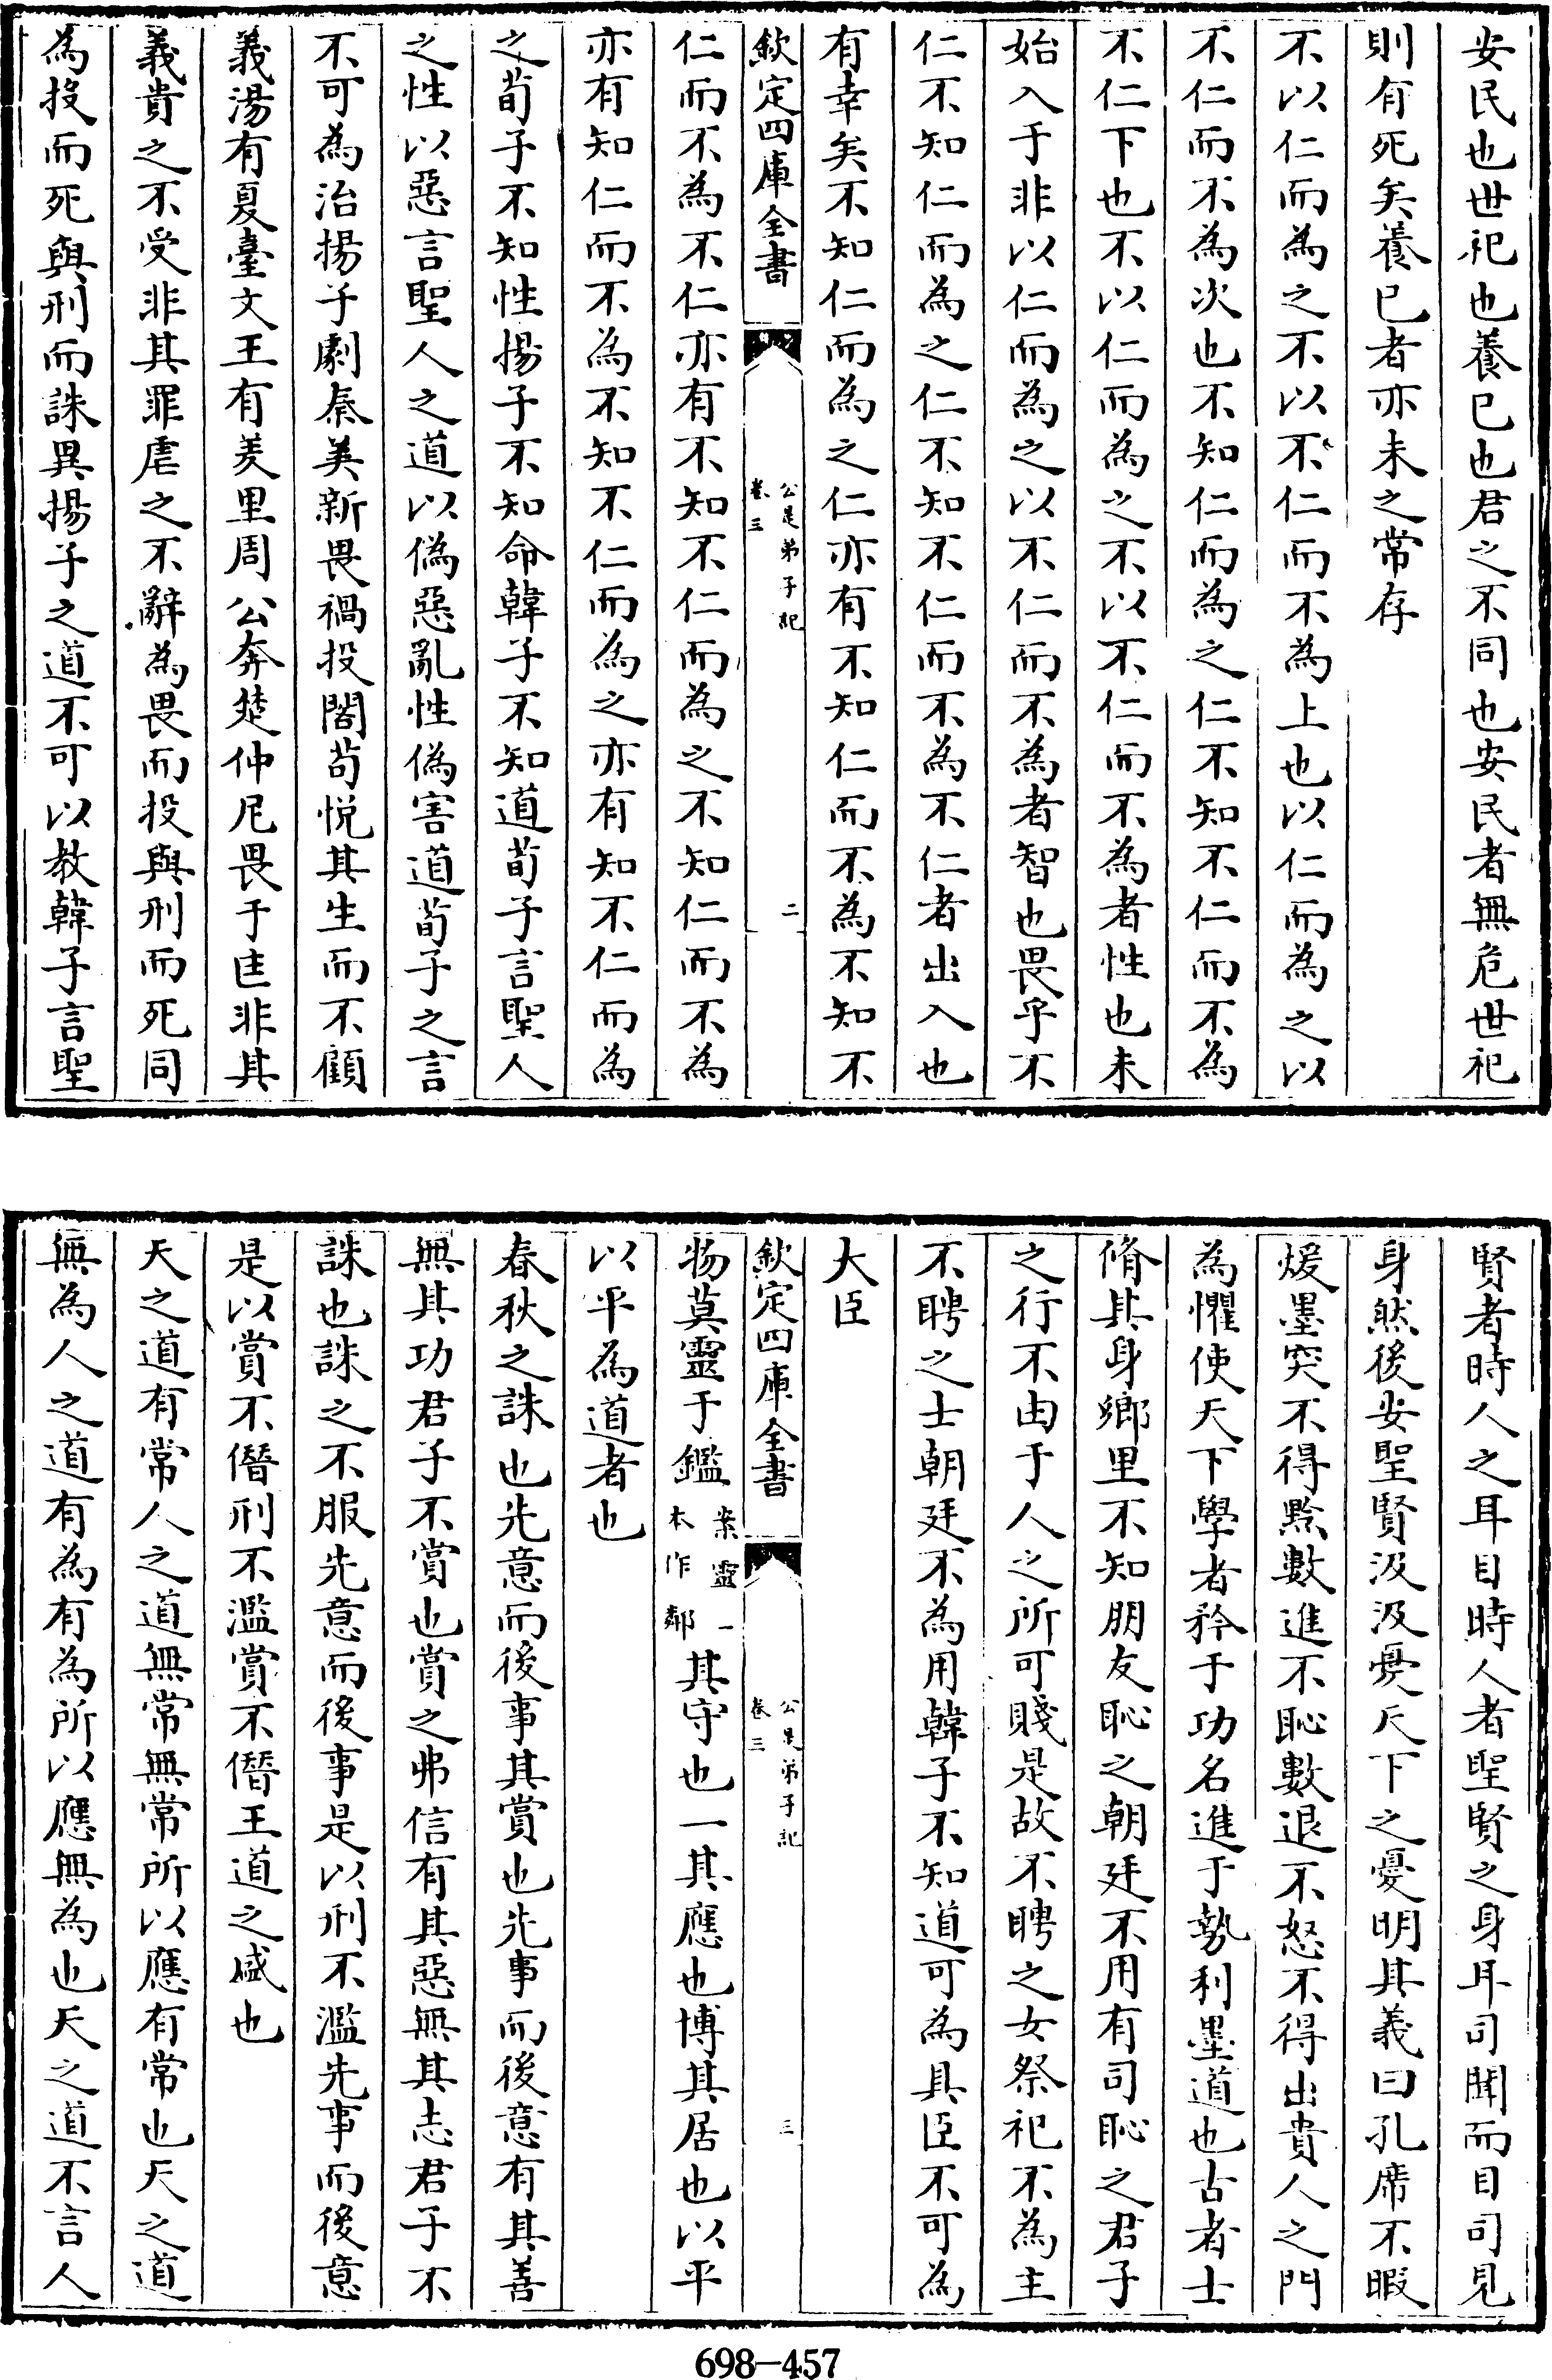 安民也世祀也養已也君之不同也安民者無危世祀
則有死矣養已者亦未之常存
不以仁而為之不以不仁而不為上也以仁而為之以
不仁而不為次也不知仁而為之仁不知不仁而不為
不仁下也不以仁而為之不以不仁而不為者性也未
始入于非以仁而為之以不仁而不為者智也畏乎不
仁不知仁而為之仁不知不仁而不為不仁者出入也
有幸矣不知仁而為之仁亦有不知仁而不為不知不
欽定四庫全書
公是弟子記
卷三
二
仁而不為不仁亦有不知不仁而為之不知仁而不為
亦有知仁而不為不知不仁而為之亦有知不仁而為
之荀子不知性揚子不知命韓子不知道荀子言聖人
之性以惡言聖人之道以偽惡亂性偽害道荀子之言
不可為治揚子劇秦美新畏禍投閣苟悅其生而不顧
義湯有夏臺文王有羑里周公奔楚仲尼畏于匡非其
義貴之不受非其罪虐之不辭為畏而投與刑而死同
為投而死與刑而誅異揚子之道不可以教韓子言聖
賢者時人之耳目時人者聖賢之身耳司聞而目司見
身然後安聖賢汲汲憂天下之憂明其義曰孔席不暇
煖墨突不得黔數進不恥數退不怒不得出貴人之門
為懼使天下學者矜于功名進于勢利墨道也古者士
脩其身鄉里不知朋友恥之朝廷不用有司恥之君子
之行不由于人之所可賤是故不聘之女祭祀不為主
不聘之士朝廷不為用韓子不知道可為具臣不可為
大臣
欽定四庫全書
公是弟子記
卷三
三
物莫靈于鑑案靈一本作鄰其守也一其應也博其居也以平
以平為道者也
春秋之誅也先意而後事其賞也先事而後意有其善
無其功君子不賞也賞之弗信有其惡無其志君子不
誅也誅之不服先意而後事是以刑不濫先事而後意
是以賞不僭刑不濫賞不僭王道之盛也
天之道有常人之道無常無常所以應有常也天之道
無為人之道有為有為所以應無為也天之道不言人
698-457